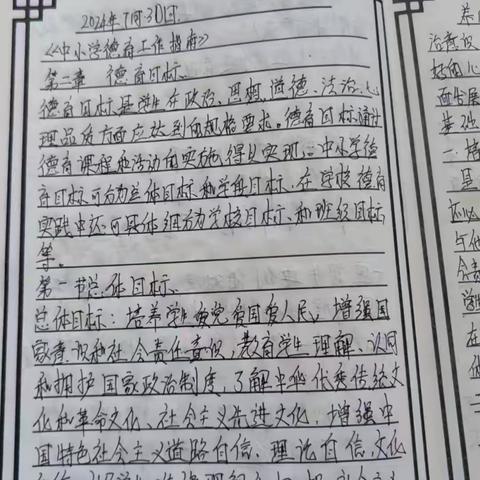 2024年7月30日.
《中小学德育工作指南》
第二章 德育目标.
德育目标是学生在政治、思想、道德、法治、心
理品质方面应达到的规格要求。德育目标通过
德育课程和活动的实施,得以实现。中小学德
育目标可分为总体目标和学段目标.在学校德育
实践中还可具体细分为学校目标、和班级目标
等。
第一节总体目标.
总体目标:培养学生爱党爱国爱人民,增强国
家意识和社会责任意识,教育学生理解、认同
和拥护国家政治制度,了解中华优秀传统文
化和革命文化、社会主义先进文化,增强中
国特色社会主义道路自信、理论自信,文化
养
治意识
好的心
面发展
基础
一培
是
还必
与他
会责
学生
在